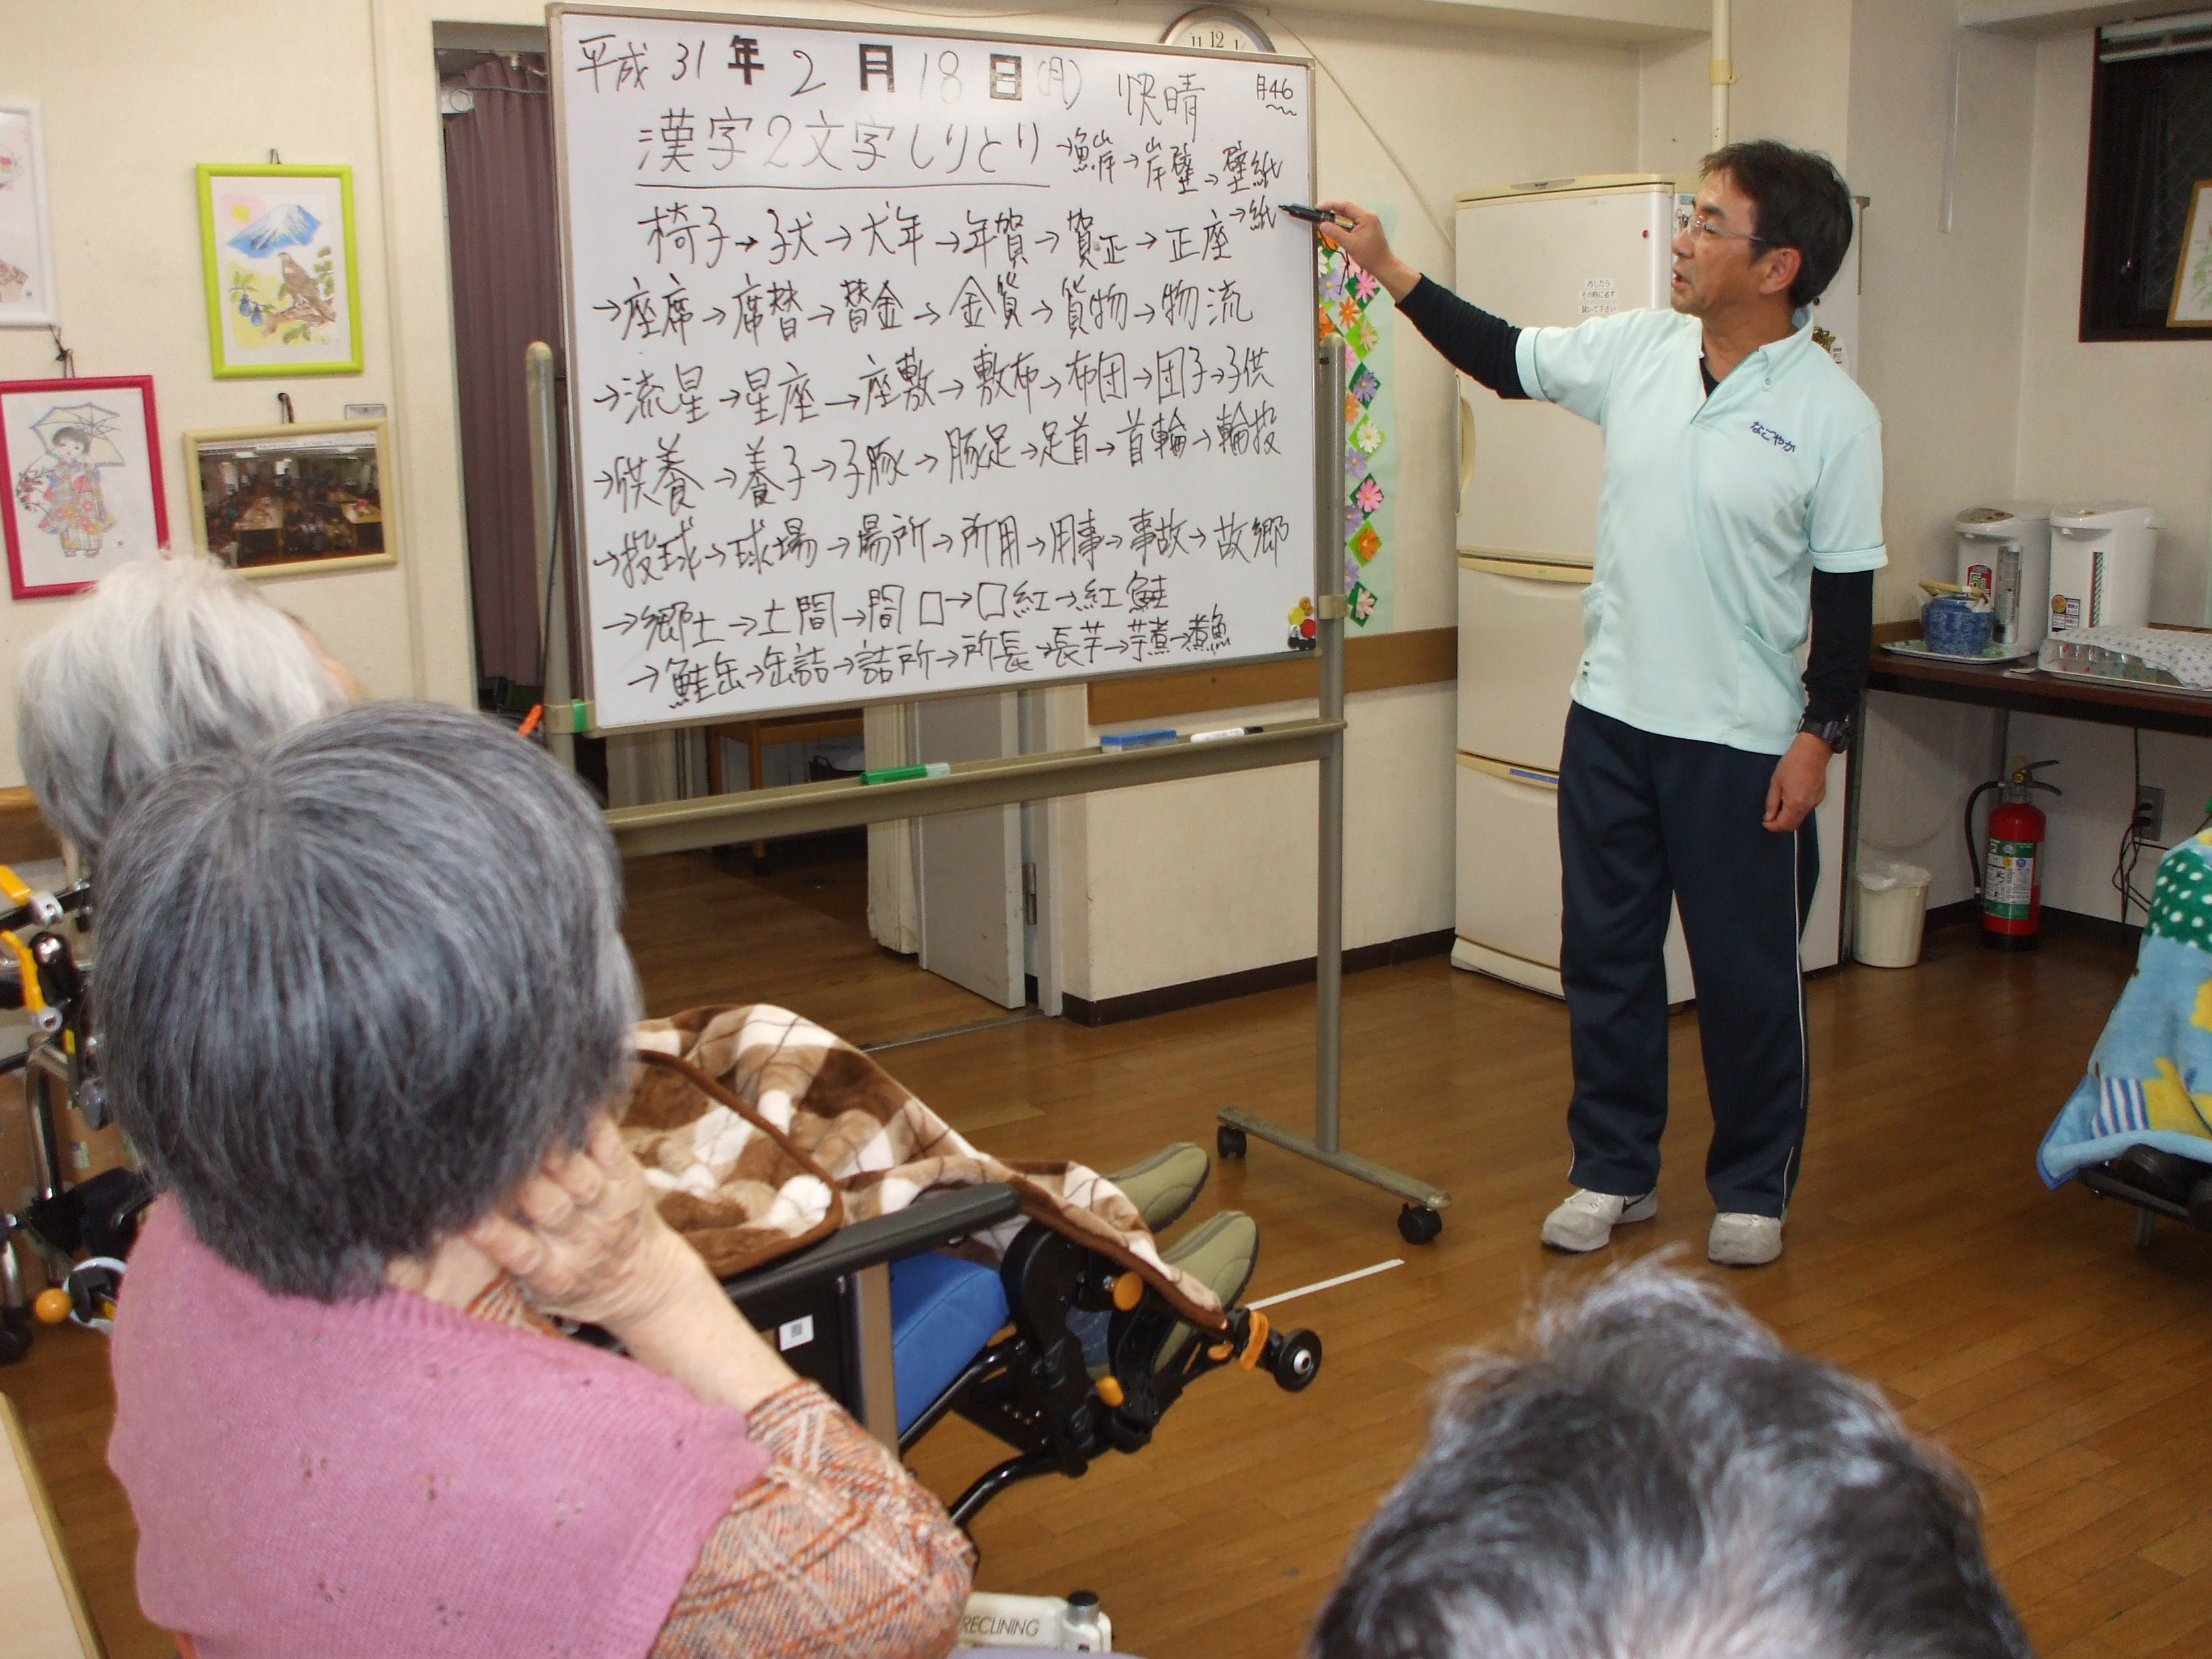 平成 31 年 2 月 18 日 (月) 快晴 月46
漢字2文字しりとり
→魚岸→岸壁→壁紙
→紙
椅子→子犬→犬年→年賀→賀正→正座
→座席→席替→替金→金貨→貨物→物流
→流星→星座→座敷→敷布→布団→団子→子供
→供養→養子→子豚→豚足→足首→首輪→輪投
→投球→球場→場所→所用→用事→事故→故郷
→郷土→土間→間口→口紅→紅鮭
→鮭缶→缶詰→詰所→所長→長芋→芋煮→煮魚
なごやか
外したら
その時に必ず
拭いて下さい
11 12 1
RECLINING